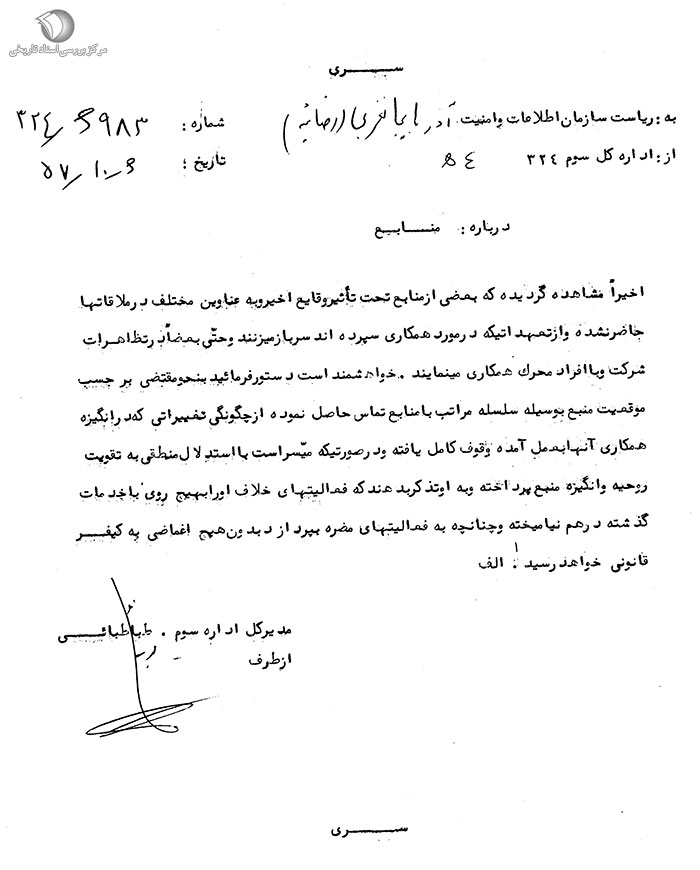 مرکز بررسی اسناد تاریخی
سری
به: ریاست سازمان اطلاعات و امنیت آذربایجانغربی (رضائیه) شماره: ۳۲۴/۶۹۸۳
از: اداره کل سوم ۳۲۴ ۵۴ تاریخ: ۵۷/۱۰/۶
درباره: منابع
اخیراً مشاهده گردیده که بعضی از منابع تحت تأثیر وقایع اخیر و به عناوین مختلف در ملاقاتها
حاضر نشده و از تعهداتیکه در مورد همکاری سپرده اند سرباز میزنند و حتّی بعضاً در تظاهرات
شرکت و با افراد محرک همکاری مینمایند. خواهشمند است دستور فرمائید بنحو مقتضی بر حسب
موقعیت منبع بوسیله سلسله مراتب با منابع تماس حاصل نموده از چگونگی تغییراتی که در انگیزه
همکاری آنها بعمل آمده وقوف کامل یافته و در صورتیکه میّسر است با استدلال منطقی به تقویت
روحیه و انگیزه منبع پرداخته و به او تذکر بدهند که فعالیتهای خلاف او را بهیچ روی با خدمات
گذشته در هم نیامیخته و چنانچه به فعالیتهای مضره بپردازد بدون هیچ اغماضی به کیفر
قانونی خواهد رسید. الف
مدیرکل اداره سوم. طباطبائی
از طرف
سری